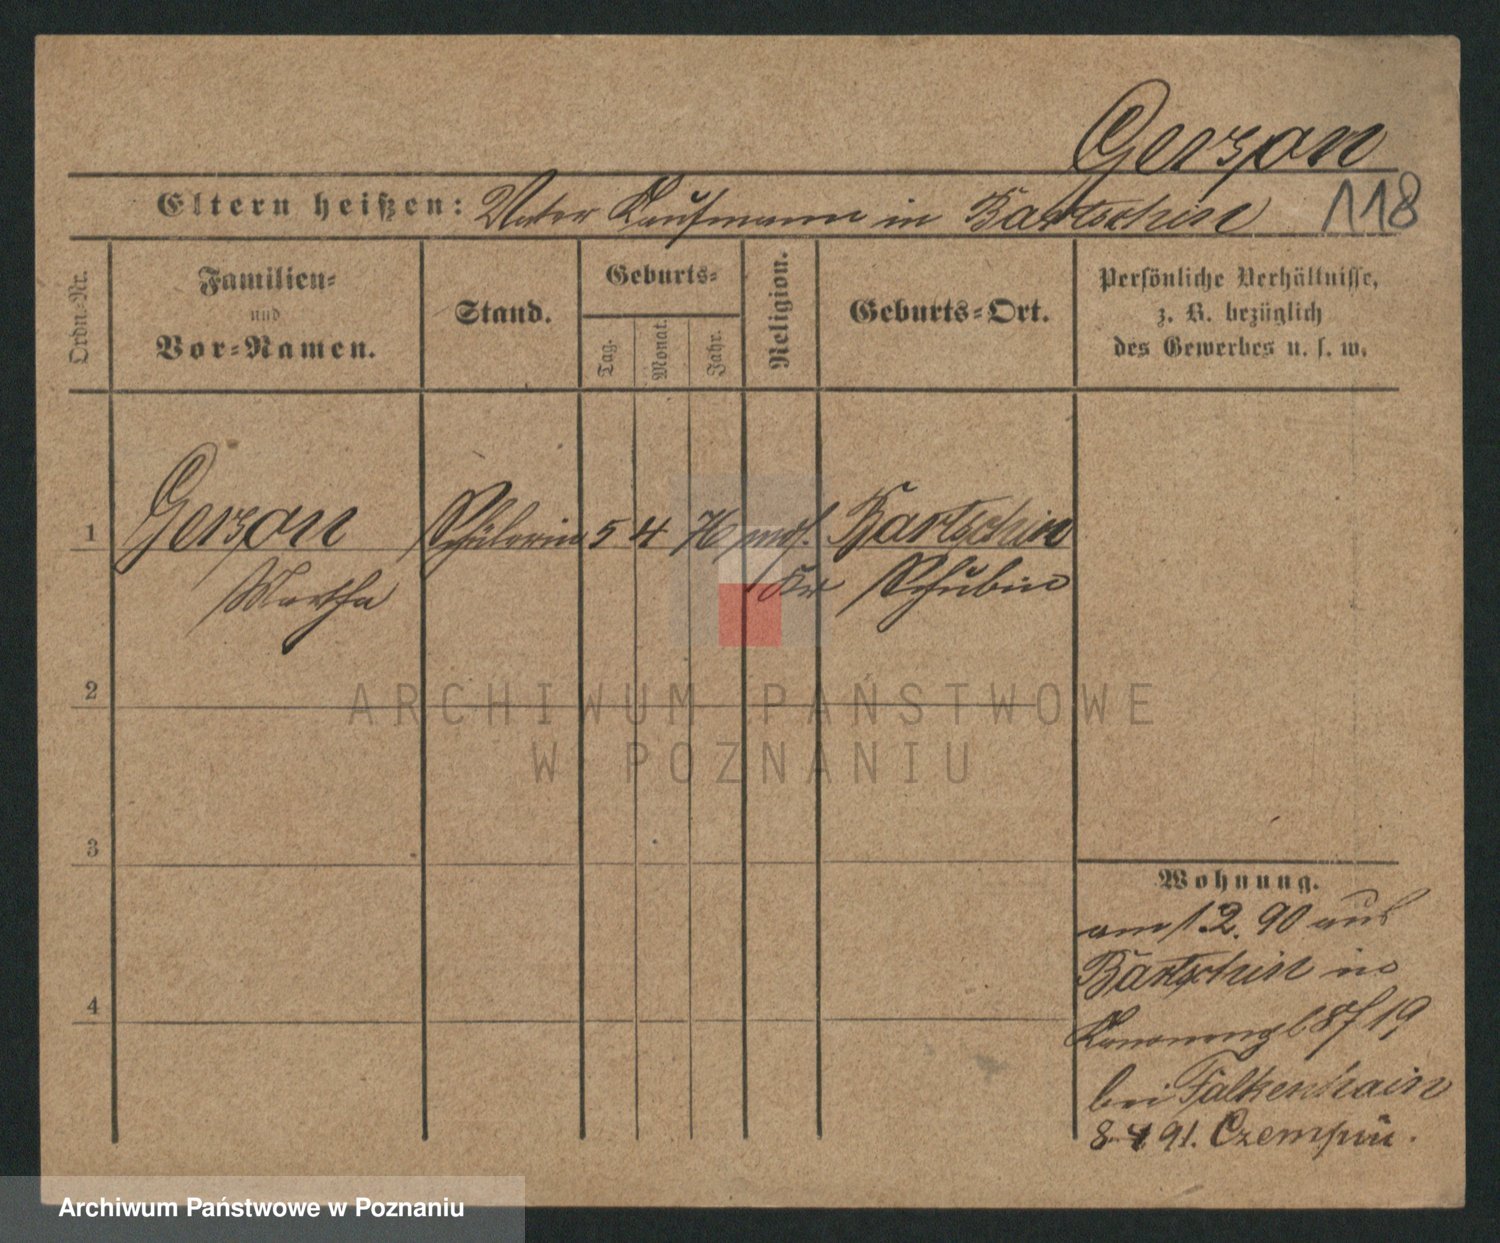 Gerson
Eltern heißen: Vater Kaufmann in Bartschin 118
Ordn.-Nr.
Familien-
und
Vor-Namen.
Stand.
Geburts-
Tag.
Monat.
Jahr.
Religion.
Geburts-Ort.
Persönliche Verhältnisse,
z. B. bezüglich
des Gewerbes u. s. w.
1 Gerson Schülerin 5 4 76 mos. Bartschin
Martha Kr Schubin
2
3
4
Wohnung.
am 1.2.90 aus
Bartschin in
19
bei Falkenhain
8 4 91. Czempin.
ARCHIWUM PAŃSTWOWE
W POZNANIU
Archiwum Państwowe w Poznaniu